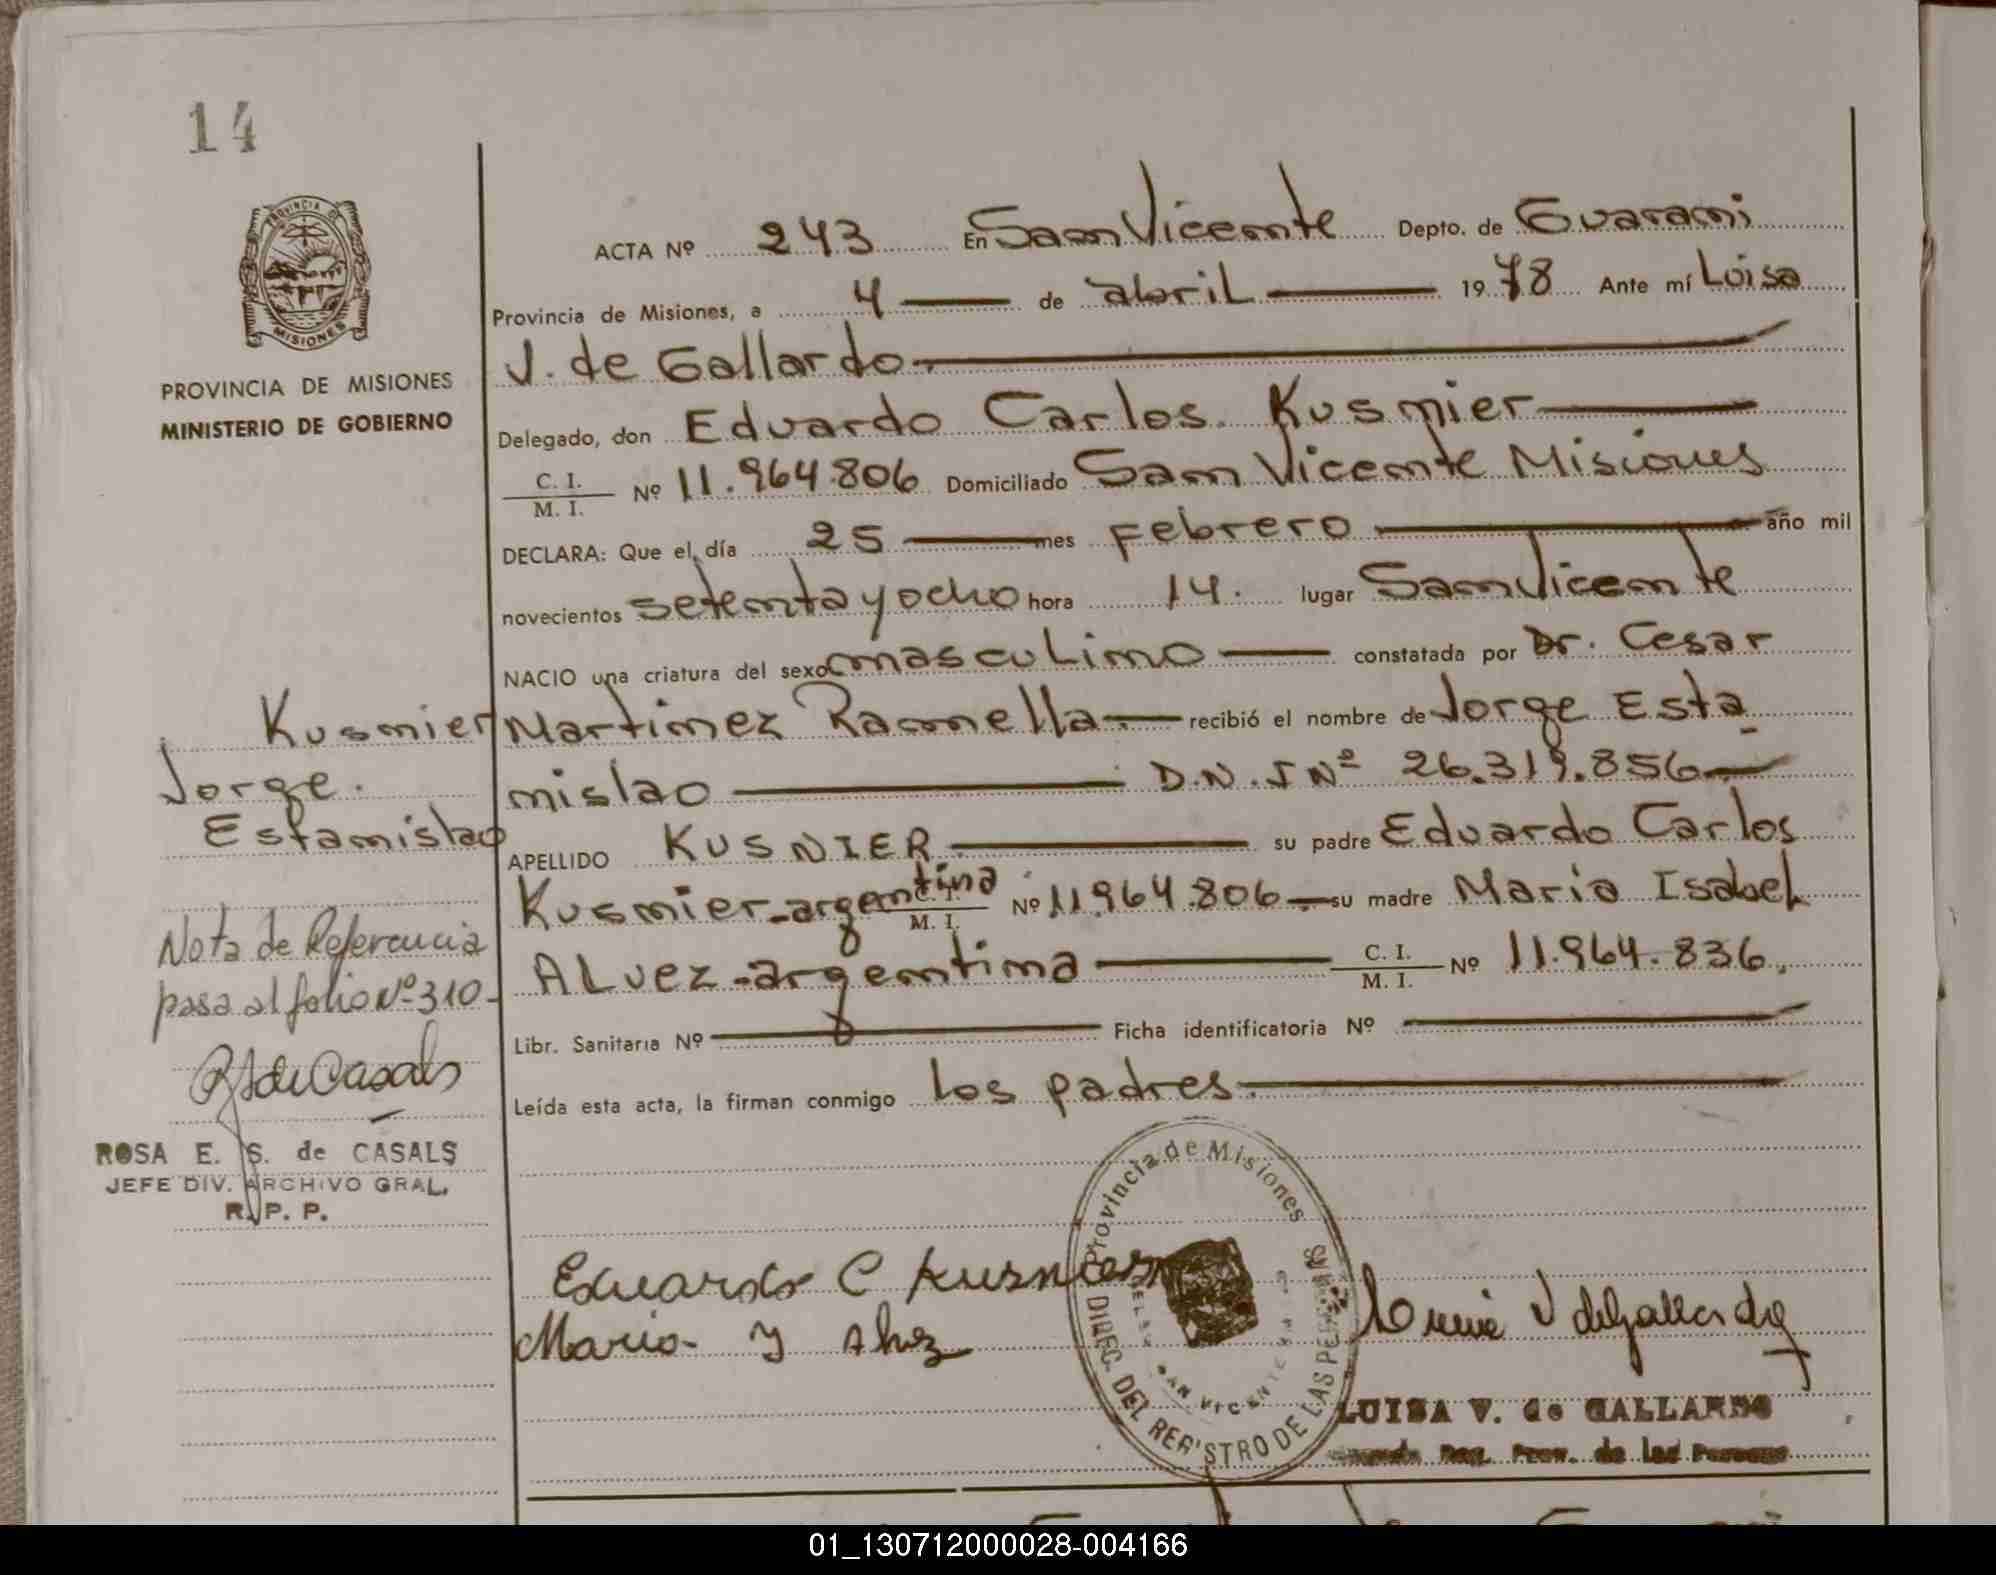 14
PROVINCIA DE MISIONES
PROVINCIA DE MISIONES
MINISTERIO DE GOBIERNO
ACTA Nº 243 En San Vicente Depto. de Guarani
Provincia de Misiones, a 4 de abril 1978 Ante mí Loisa
V. de Gallardo
Delegado, don Eduardo Carlos Kusnier
C. I.
M. I. Nº 11.964.806 Domiciliado San Vicente Misiones
DECLARA: Que el día 25 mes Febrero año mil
novecientos setenta y ocho hora 14. lugar San Vicente
NACIO una criatura del sexo masculino constatada por Dr. Cesar
Martinez Ramella recibió el nombre de Jorge Esta
nislao D.N.I Nº 26.319.856
APELLIDO KUSNIER su padre Eduardo Carlos
Kusnier-argentina M. I. Nº 11.964.806 su madre Maria Isabel
ALvez-argentina C. I. M. I. Nº 11.964.836.
Libr. Sanitaria Nº Ficha identificatoria Nº
Leída esta acta, la firman conmigo los padres
Kusnier
Jorge.
Estanislao
Nota de Referencia
pasa al folio Nº 310-
RS de Casals
ROSA E. S. de CASALS
JEFE DIV. ARCHIVO GRAL.
R. P. P.
Eduardo C Kusnier
Maria Y Alvez
Provincia de Misiones
DIREC. DEL REGISTRO DE LAS PERSONAS
SAN VICENTE
V de Gallardo
LUISA V. de GALLARDO
Reg. Prov. de las Personas
01_130712000028-004166